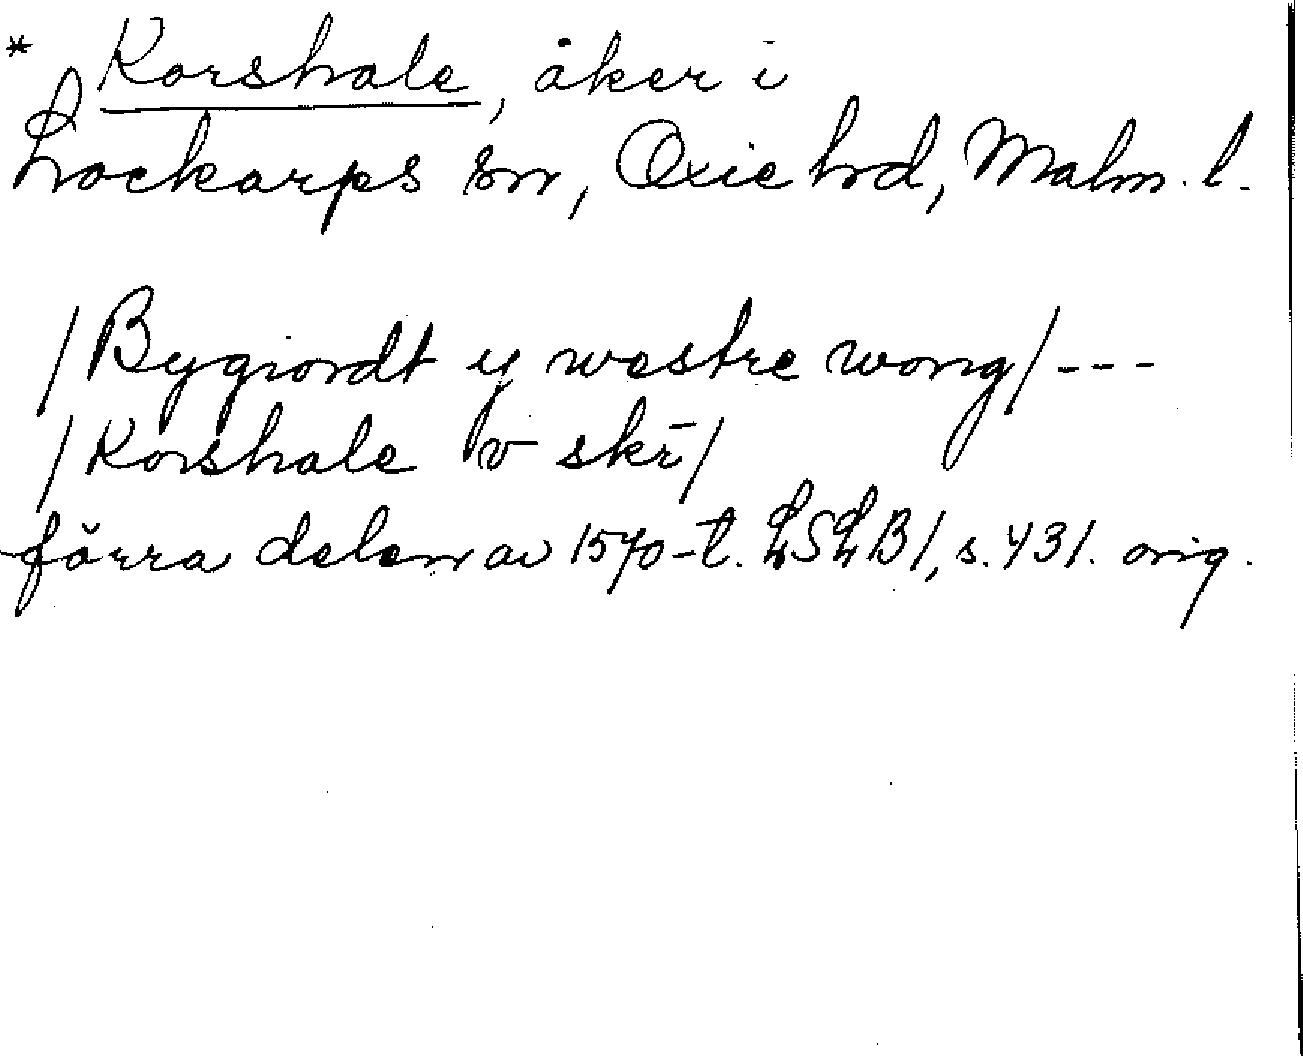 * Korshale, åker i
Lockarps sn, Oxie hd, Malm. l.
/Bygiordt y westre wong/ ---
/Korshale v skr̄/
förra delen av 1570-t. LSLB1, s. 431. orig.